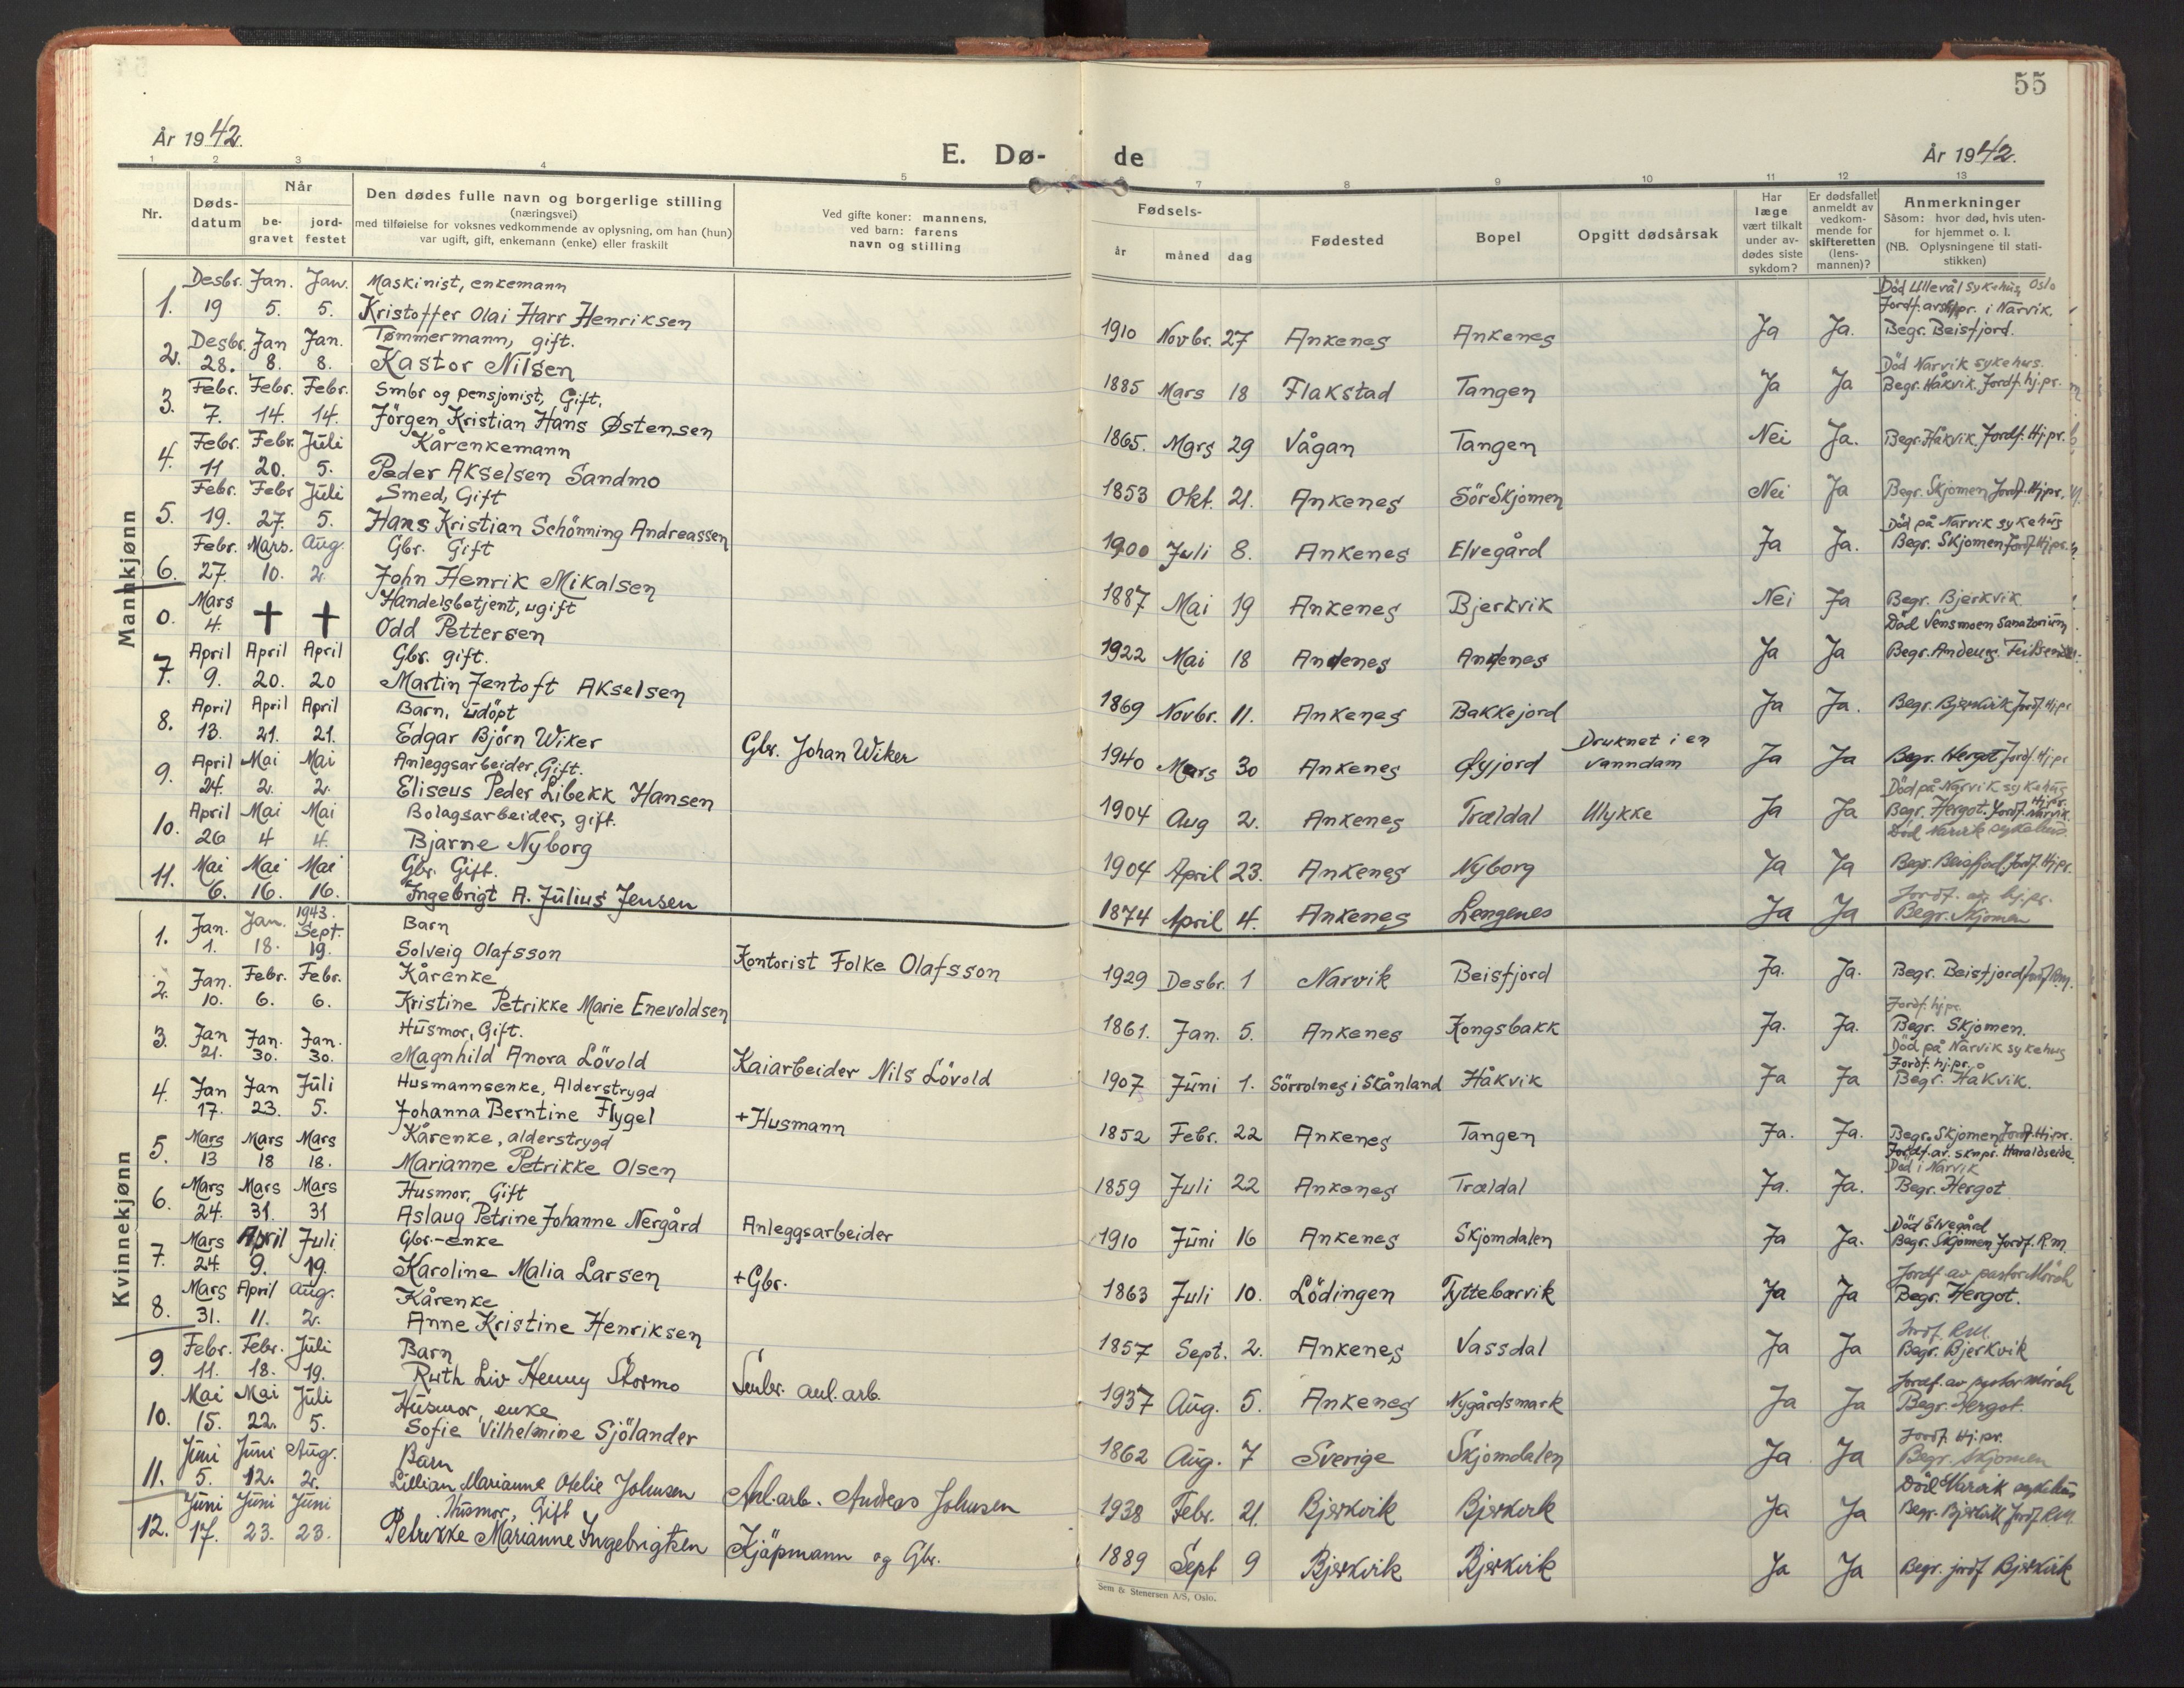 55
År 1942.
E. Dø-
de
År 1942.
1 2 3 4 5 7 8 9 10 11 12 13
Nr.
Døds-
datum
Når
be-
gravet
jord-
festet
Den dødes fulle navn og borgerlige stilling
(næringsvei)
med tilføielse for voksnes vedkommende av oplysning, om han (hun)
var ugift, gift, enkemann (enke) eller fraskilt
Ved gifte koner: mannens,
ved barn: farens
navn og stilling
Fødsels-
år måned dag
Fødested
Bopel
Opgitt dødsårsak
Har
læge
vært tilkalt
under av-
dødes siste
sykdom?
Er dødsfallet
anmeldt av
vedkom-
mende for
skifteretten
(lens-
mannen)?
Anmerkninger
Såsom: hvor død, hvis uten-
for hjemmet o. l.
(NB. Oplysningene til stati-
stikken)
Mannkjønn
Desbr. Jan. Jan. Maskinist, enkemann
1. 19 5. 5. Kristoffer Olai Harr Henriksen
Desbr. Jan Jan. Tømmermann, gift.
2. 28. 8. 8. Kastor Nilsen
Febr. Febr. Febr. Smbr og pensjonist, Gift.
3. 7. 14. 14. Jörgen Kristian Hans Østensen
Febr. Febr. Juli Kårenkemann
4. 11 20. 5. Peder Akselsen Sandmo
Febr. Febr Juli Smed, Gift
5. 19. 27. 5. Hans Kristian Schönning Andreassen
Febr. Mars. Aug. Gbr. Gift
6. 27. 10. 2. John Henrik Mikalsen
Mars Handelsbetjent, ugift
0. 4. † † Odd Pettersen
April April April Gbr. gift.
7. 9. 20. 20 Martin Jentoft Akselsen
April April April Barn, udöpt
8. 13. 21. 21. Edgar Bjørn Wiker Gbr. Johan Wiker
April Mai Mai Anleggsarbeider, Gift.
9. 24. 2. 2. Eliseus Peder Libekk Hansen
April Mai Mai Bolagsarbeider, gift.
10. 26 4 4. Bjarne Nyborg
Mai Mai Mai Gbr. Gift.
11. 6. 16. 16. Ingebrigt A. Julius Jensen
Kvinnekjønn
Jan. Jan. 1943. Sept. Barn
1. 1. 18. 19. Solveig Olafsson Kontorist Folke Olafsson
Jan. Febr. Febr. Kårenke
2. 10. 6. 6. Kristine Petrikke Marie Enevoldsen
Jan Jan. Jan. Husmor, Gift.
3. 21. 30. 30. Magnhild Anora Lövold Kaiarbeider Nils Lövold
Jan Jan Juli Husmannsenke, Alderstrygd
4. 17. 23. 5. Johanna Berntine Flygel +Husmann
Mars Mars Mars Kårenke, alderstrygd
5. 13 18 18. Marianne Petrikke Olsen
Mars Mars Mars Husmor, Gift
6. 24. 31. 31 Aslaug Petrine Johanne Nergård Anleggsarbeider
Mars April Juli Gbr.-enke
7. 24. 9. 19. Karoline Malia Larsen +Gbr.
Mars April Aug. Kårenke
8. 31. 11. 2. Anne Kristine Henriksen
Febr. Febr. Juli Barn
9. 11. 18. 19. Ruth Liv Henny Stormo Smbr. anl.arb.
Mai Mai Juli Husmor, enke
10. 15. 22. 5. Sofie Vilhelmine Sjölander
Juni Juni Aug. Barn
11. 5. 12. 2. Lillian Marianne Otelie Johnsen Anl.arb. Andreas Johnsen
Juni Juni Juni Husmor, Gift
12. 17. 23. 23. Petrikke Marianne Ingebrigtsen Kjöpmann og Gbr.
Død Ullevål sykehus Oslo
Jordf. av sknpr. i Narvik.
1910 Novbr. 27 Ankenes Ankenes Ja Ja. Begr. Beisfjord.
Død Narvik sykehus.
1885 Mars 18 Flakstad Tangen Ja Ja Begr. Håkvik, Jordf. hj.pr.
1865. Mars 29 Vågan Tangen Nei Ja. Begr. Håkvik, Jordf. Hj.pr.
1853 Okt. 21. Ankenes Sör Skjomen Nei Ja Begr. Skjomen Jordf. Hj.pr.
Död på Narvik sykehus
1900 Juli 8. Ankenes Elvegård Ja Ja. Begr. Skjomen Jordf. Hj.pr.
1887 Mai 19 Ankenes Bjerkvik Nei Ja Begr. Bjerkvik
Död Vensmoen Sanatorium
1922 Mai 18 Andenes Andenes Ja Ja Begr. Andenes
1869 Novbr. 11. Ankenes Bakkejord Ja Ja. Begr. Bjerkvik Jordf. Hj.pr
1940 Mars 30 Ankenes Øyjord Druknet i en vanndam Ja Ja Begr. Hergot Jordf. Hj.pr
Död på Narvik sykehus
1904 Aug 2. Ankenes Træeldal Ulykke Ja Ja Begr. Hergot. Jordf. Hj.pr. Narvik.
Død Narvik sykehus.
1904 April 23. Ankenes Nyborg Ja Ja Begr. Beisfjord Jordf. Hj.pr.
Jordf. av hj.pr.
1874 April 4. Ankenes Lengenes Ja Ja Begr. Skjomen
1929 Desbr. 1 Narvik Beisfjord Ja. Ja. Begr. Beisfjord Jordf R.m.
Jordf. hj.pr.
1861. Jan. 5. Ankenes Kongsbakk Ja. Ja. Begr. Skjomen.
Död på Narvik sykehus
Jordf. hj.pr.
1907 Juni 1. Sörrolnes i Skånland Håkvik Ja Ja Begr. Håkvik.
1852 Febr. 22 Ankenes Tangen Ja. Ja. Begr. Skjomen Jordf. Hj.pr.
Jordf. av. sknpr. Haraldseide.
Död i Narvik
1859 Juli 22 Ankenes Træeldal Ja. Ja. Begr. Hergot.
Död Elvegård
1910 Juni 16 Ankenes Skjomdalen Ja Ja. Begr. Skjomen Jordf. R.m.
Jordf av pastor Mörch
1863 Juli 10. Lödingen Tyttebærvik Ja Ja Begr. Hergot.
Jordf. R.M.
1857 Sept. 2. Ankenes Vassdal Ja Ja Begr. Bjerkvik
Jordf. av pastor Mörch
1937 Aug. 5. Ankenes Nygårdsmark Ja Ja Begr. Hergot.
Jordf. Hj.pr.
1862 Aug. 7 Sverige Skjomdalen Ja Ja Begr. Skjomen
Död Narvik sykehus
1938 Febr. 21. Bjerkvik Bjerkvik Ja Ja Begr. Bjerkvik Jordf R.M.
1889 Sept 9 Bjerkvik Bjerkvik Ja Ja Begr. jordf Bjerkvik
Sem & Stenersen A/S, Oslo.